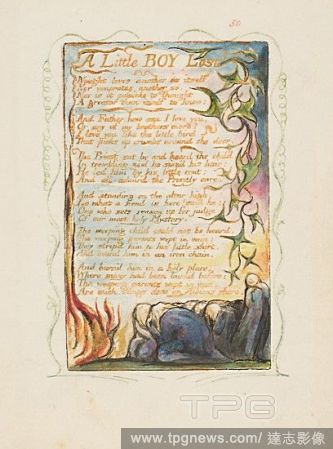 50
A Little BOY Lost
Nought loves another as itself
Nor venerates another so
Nor is it possible to Thought
A greater than itself to know:
And Father how can I love you,
Or any of my brothers more?
I love you like the little bird
That picks up crumbs around the door.
The Priest sat by and heard the child
In trembling zeal he siez'd his hair:
He led him by his little coat:
And all admir'd the Priestly care.
And standing on the altar high
Lo what a fiend is here! said he:
One who sets reason up for judge
Of our most holy Mystery.
The weeping child could not be heard.
The weeping parents wept in vain:
They strip'd him to his little shirt.
And bound him in an iron chain.
And burn'd him in a holy place,
Where many had been burn'd before:
The weeping parents wept in vain.
Are such things done on Albions shore.
TPG
www.tpgnews.com/ 達志影像